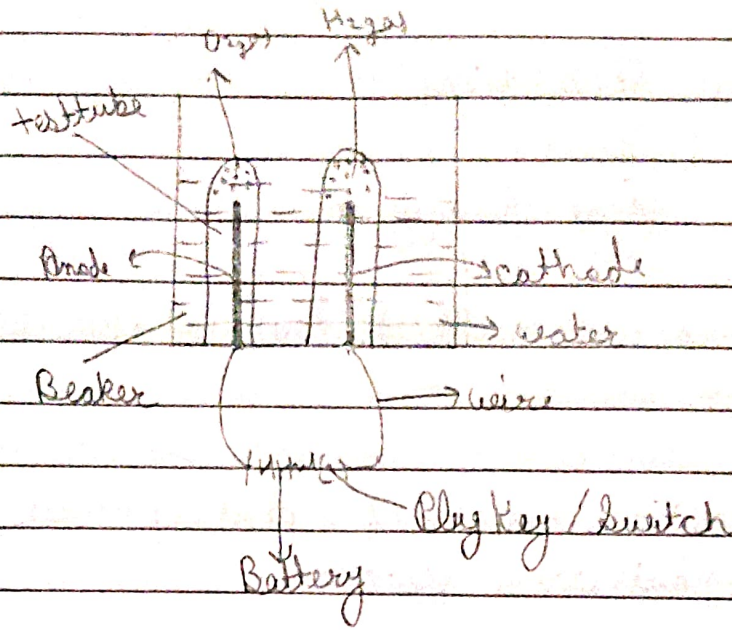 O2gas
H2gas
testtube
Anode
cathode
water
Beaker
wire
Plug Key / Switch
Battery